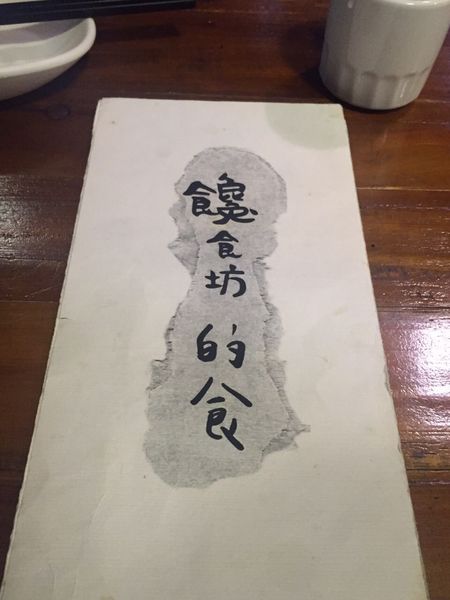 饞食坊的食